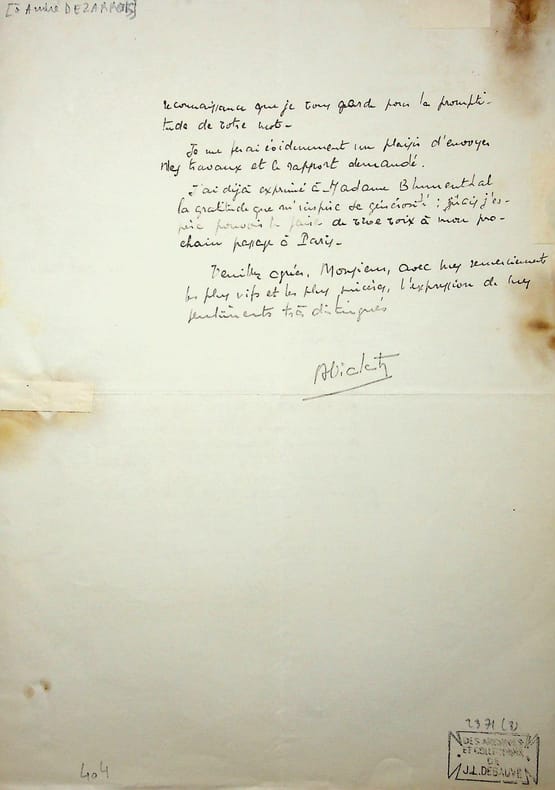 [à André DEZARROIS]
reconnaissance que je vous garde pour la prompti-
tude de votre mot-
Je me ferai évidemment un plaisir d'envoyer
mes travaux et le rapport demandé.
J'ai déjà exprimé à Madame Blumenthal
la gratitude que m'inspire sa générosité : j'es-
père pouvoir le faire de vive voix à mon pro-
chain passage à Paris-
Veuillez agréer, Monsieur, avec mes remerciements
les plus vifs et les plus sincères, l'expression de mes
sentiments très distingués
2371 (2)
DES ARCHIVES
ET COLLECTIONS
DE
J.L. DEBAUVE
404